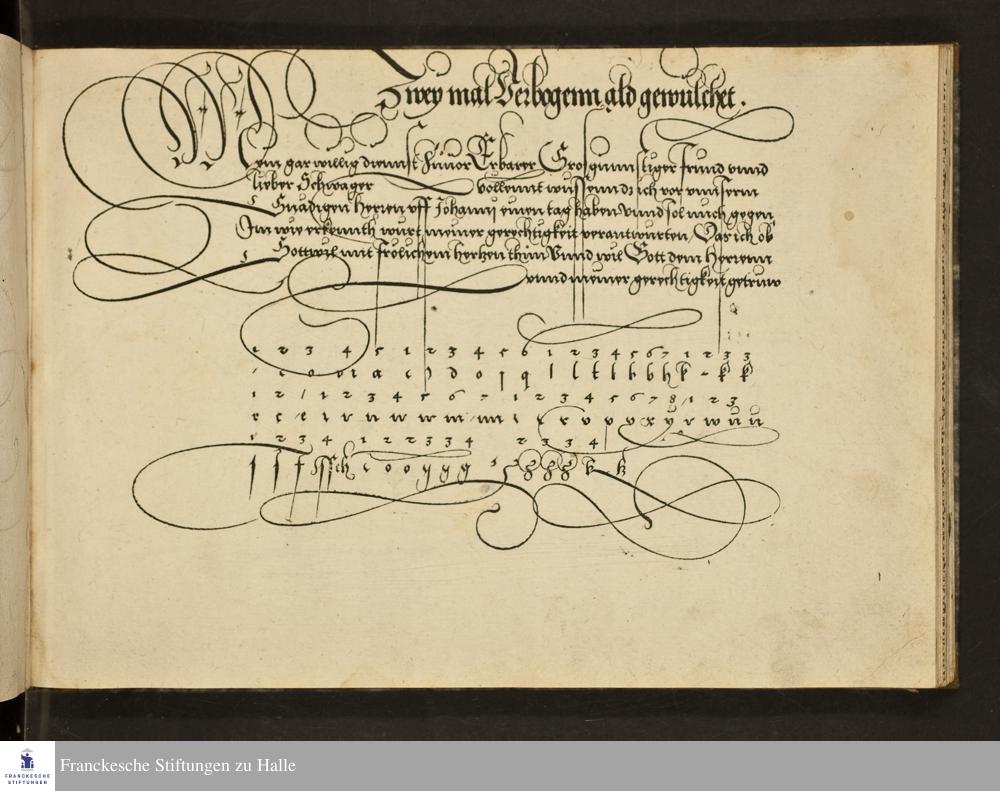 Zwey mal Verbogenn ald gewulchet.
Mein gar willig diennst zuuor Erbarer Grosgunnstiger frund vnnd
lieber Schwager vollennt wüssennd dz ich vor vnnserm
Gnädigen herren vff Johannj einen tag haben Vnnd sol mich gegen
Im wie erkennth wurt meiner gerechtigkeit verantwurten / Das ich ob
Gottwil mit frölichem hertzen thun Vnnd wil Gott dem Herrenn
vnnd meiner gerechtigkeit getruw
1 2 3 4 5 1 2 3 4 5 6 1 2 3 4 5 6 7 1 2 3 3
1 2 1 1 2 3 4 5 6 7 1 2 3 4 5 6 7 8 1 2 3
1 2 3 4 1 2 2 3 3 4 2 3 3 4
FRANCKESCHE
STIFTUNGEN
Franckesche Stiftungen zu Halle